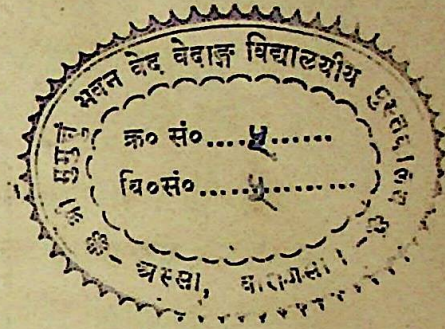 मुमुक्षु भवन वेद वेदाङ्ग विद्यालयीय पुस्तकालय
क्र० सं०....५......
वि०सं०....५............
अस्सी, वाराणसी।